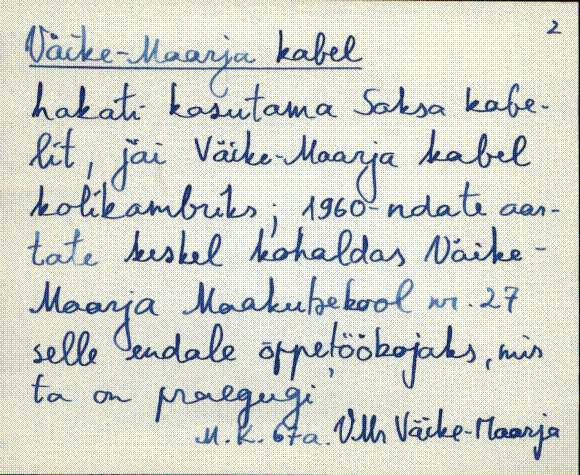 2
Väike-Maarja kabel
hakati kasutama Saksa kabe-
lit, jäi Väike-Maarja kabel
kolikambriks; 1960-ndate aas-
tate keskel kohaldas Väike-
Maarja Maakutsekool nr. 27
selle endale õppetöökojaks, mis
ta on praegugi,
M.K. 67a. VMr Väike-Maarja